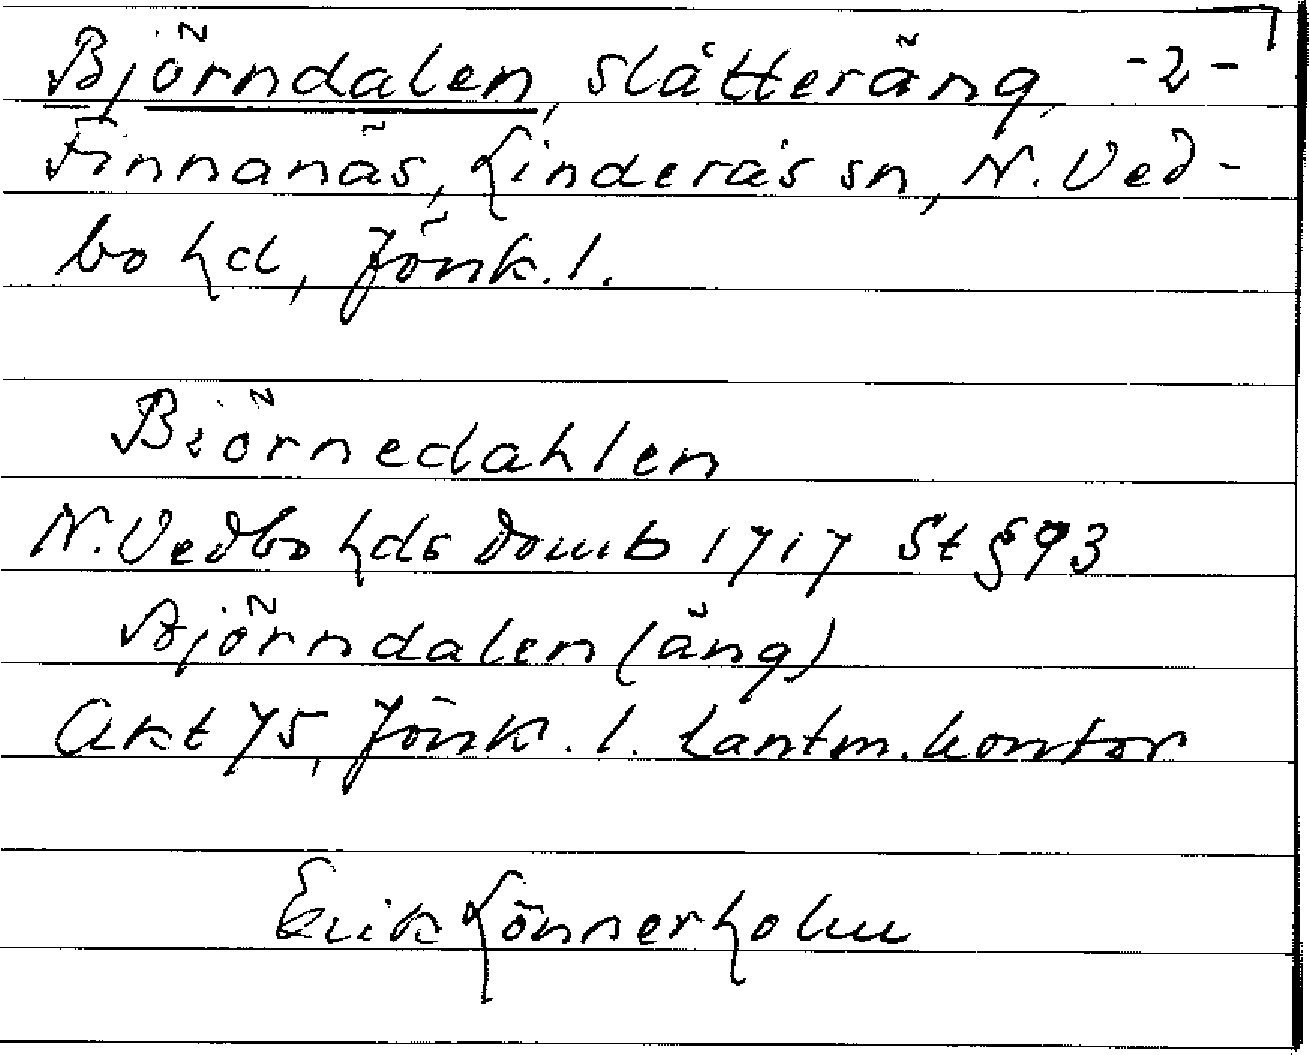 Björndalen, slåtteräng, -2-
Finnanäs, Linderås sn, N. Ved-
bo hd, Jönk. l.
Biörnedahlen
N. Vedbo hds domb 1717 St § 93
Björndalen (äng)
Akt 75, Jönk. l. Lantm. kontor
Erik Lönnerholm